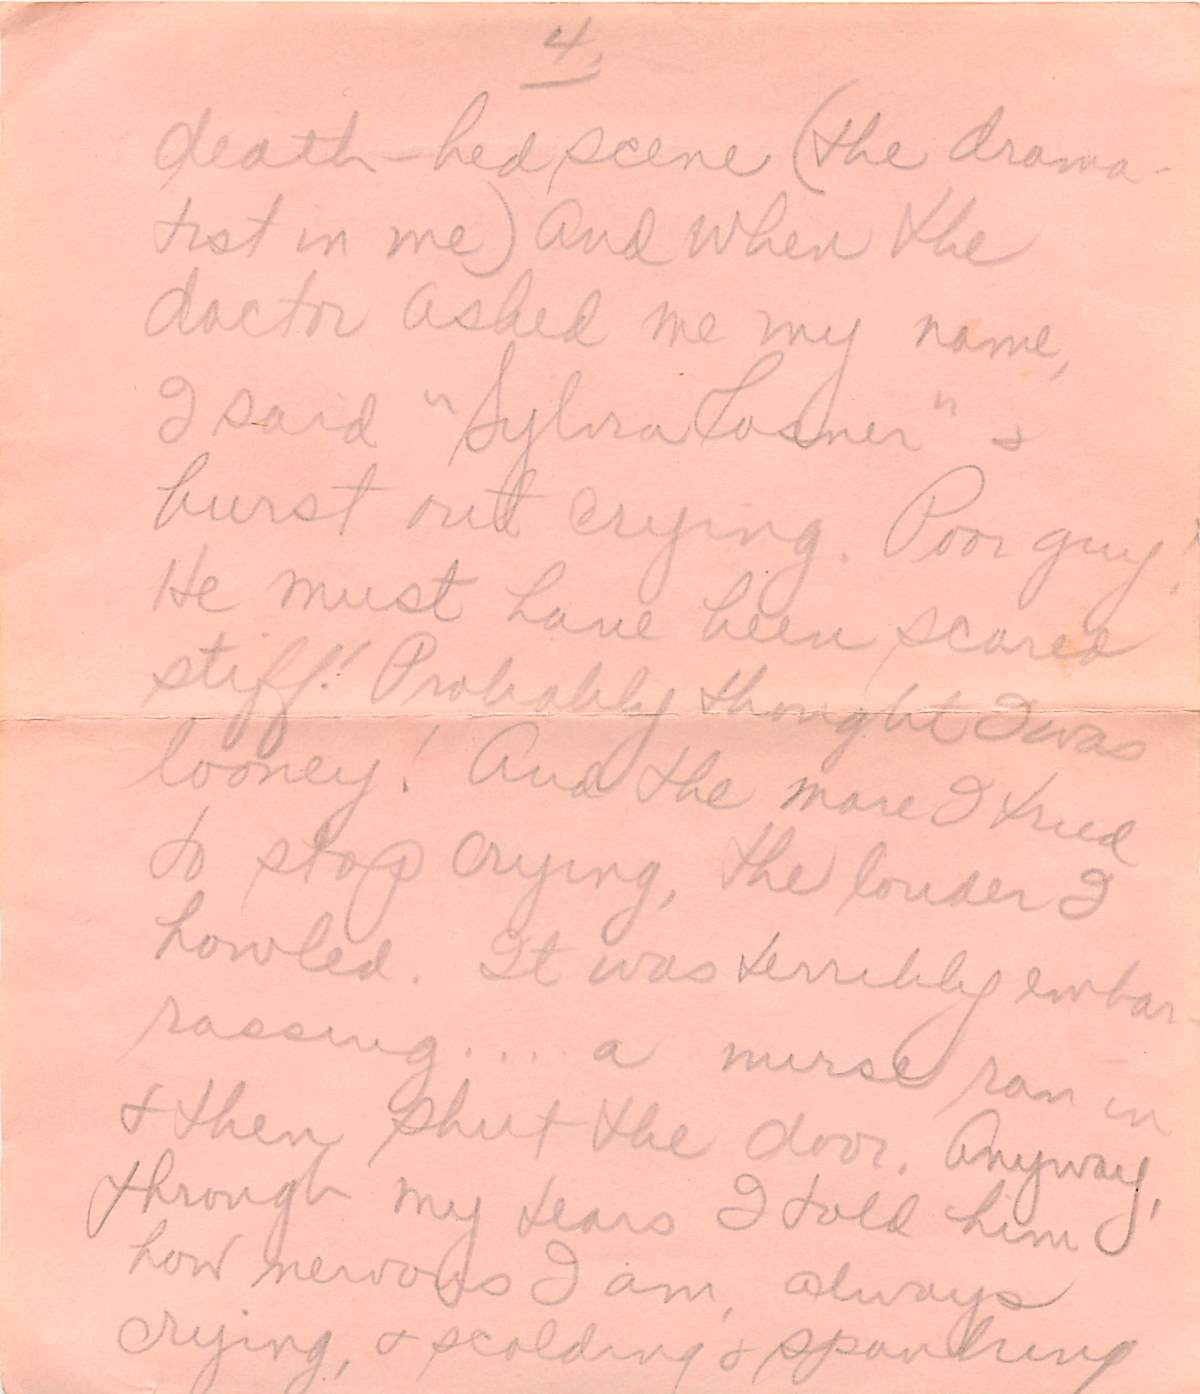 4.
death-bed scene (the drama-
tist in me) And when the
doctor asked me my name,
I said "Sylvia Losner" &
burst out crying. Poor guy!
He must have been scared
stiff! Probably thought I was
looney! And the more I tried
to stop crying, the louder I
howled. It was terribly embar-
rassing.... a nurse ran in
& then shut the door. Anyway,
through my tears I told him
how nervous I am, always
crying, & scolding & spanking